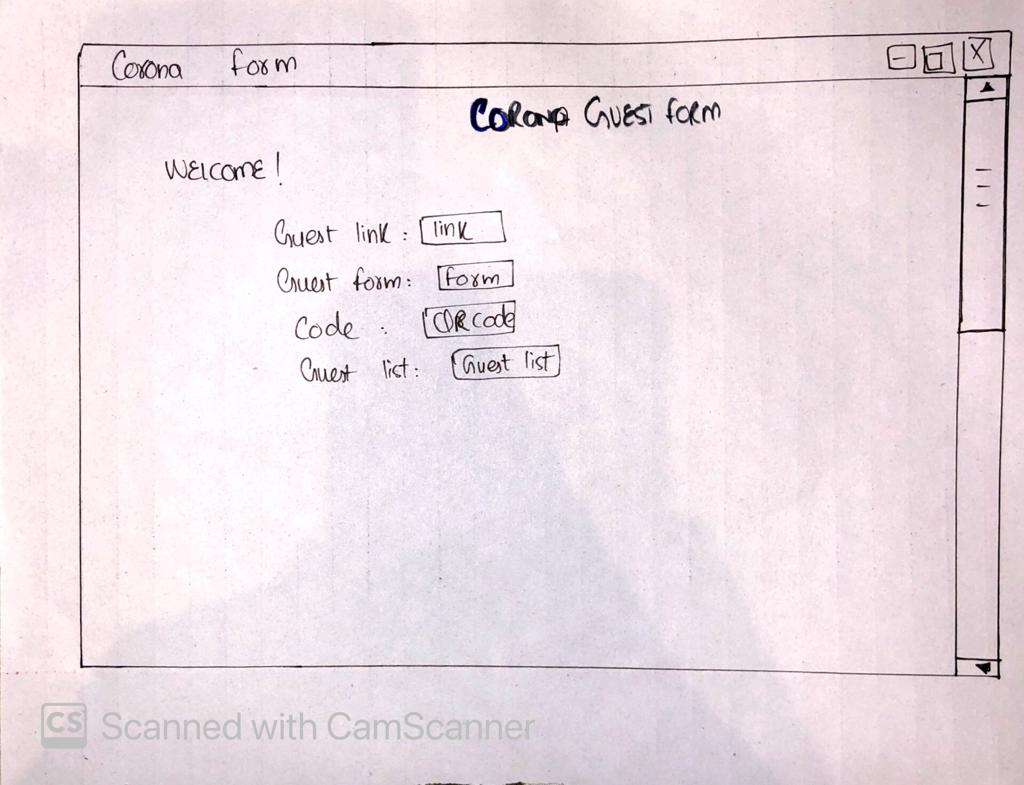 Corona form
CORONA GUEST FORM
WELCOME!
Guest link : link
Guest form: form
Code : QR code
Guest list: Guest list
CS Scanned with CamScanner